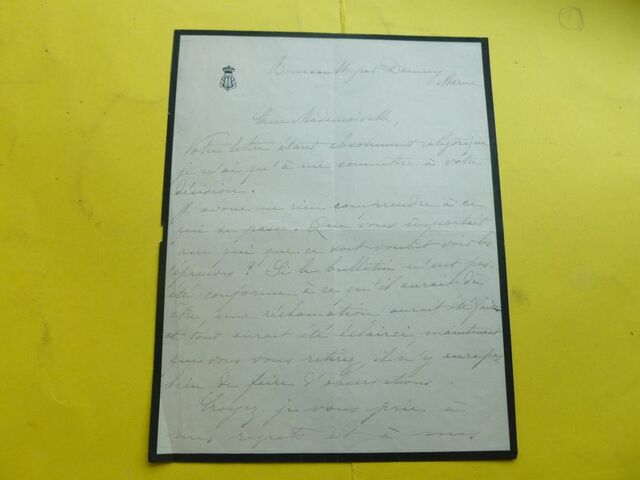 Boursault près Damery
Marne
Chère Mademoiselle,
Votre lettre étant absolument catégorique
je n'ai qu'à me soumettre à votre
décision.
J'avoue ne rien comprendre à ce
qui se passe. Que vous importait
que qui que ce soit voulut voir les
épreuves ? Si le bulletin n'eut pas
été conforme à ce qu'il aurait dû
être une réclamation aurait été faite
et tout aurait été éclairci, maintenant
que vous vous retirez, il n'y aura pas
lieu de faire d'observations.
Croyez je vous prie à
mes regrets et à mes